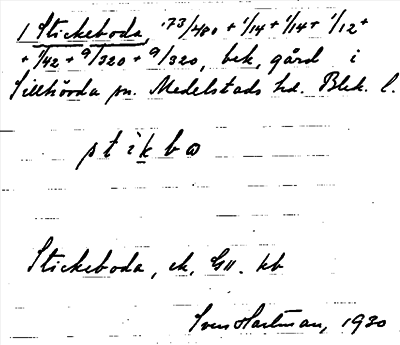 1 Stickeboda, 73/480 + 1/14 + 1/14 + 1/12 +
+ 1/42 + 9/320 + 9/320, bek. gård i
Sillhövda sn. Medelstads hd. Blek. l.
stikbo
Stickeboda, ek, GII. kb
Sven Hartman, 1930